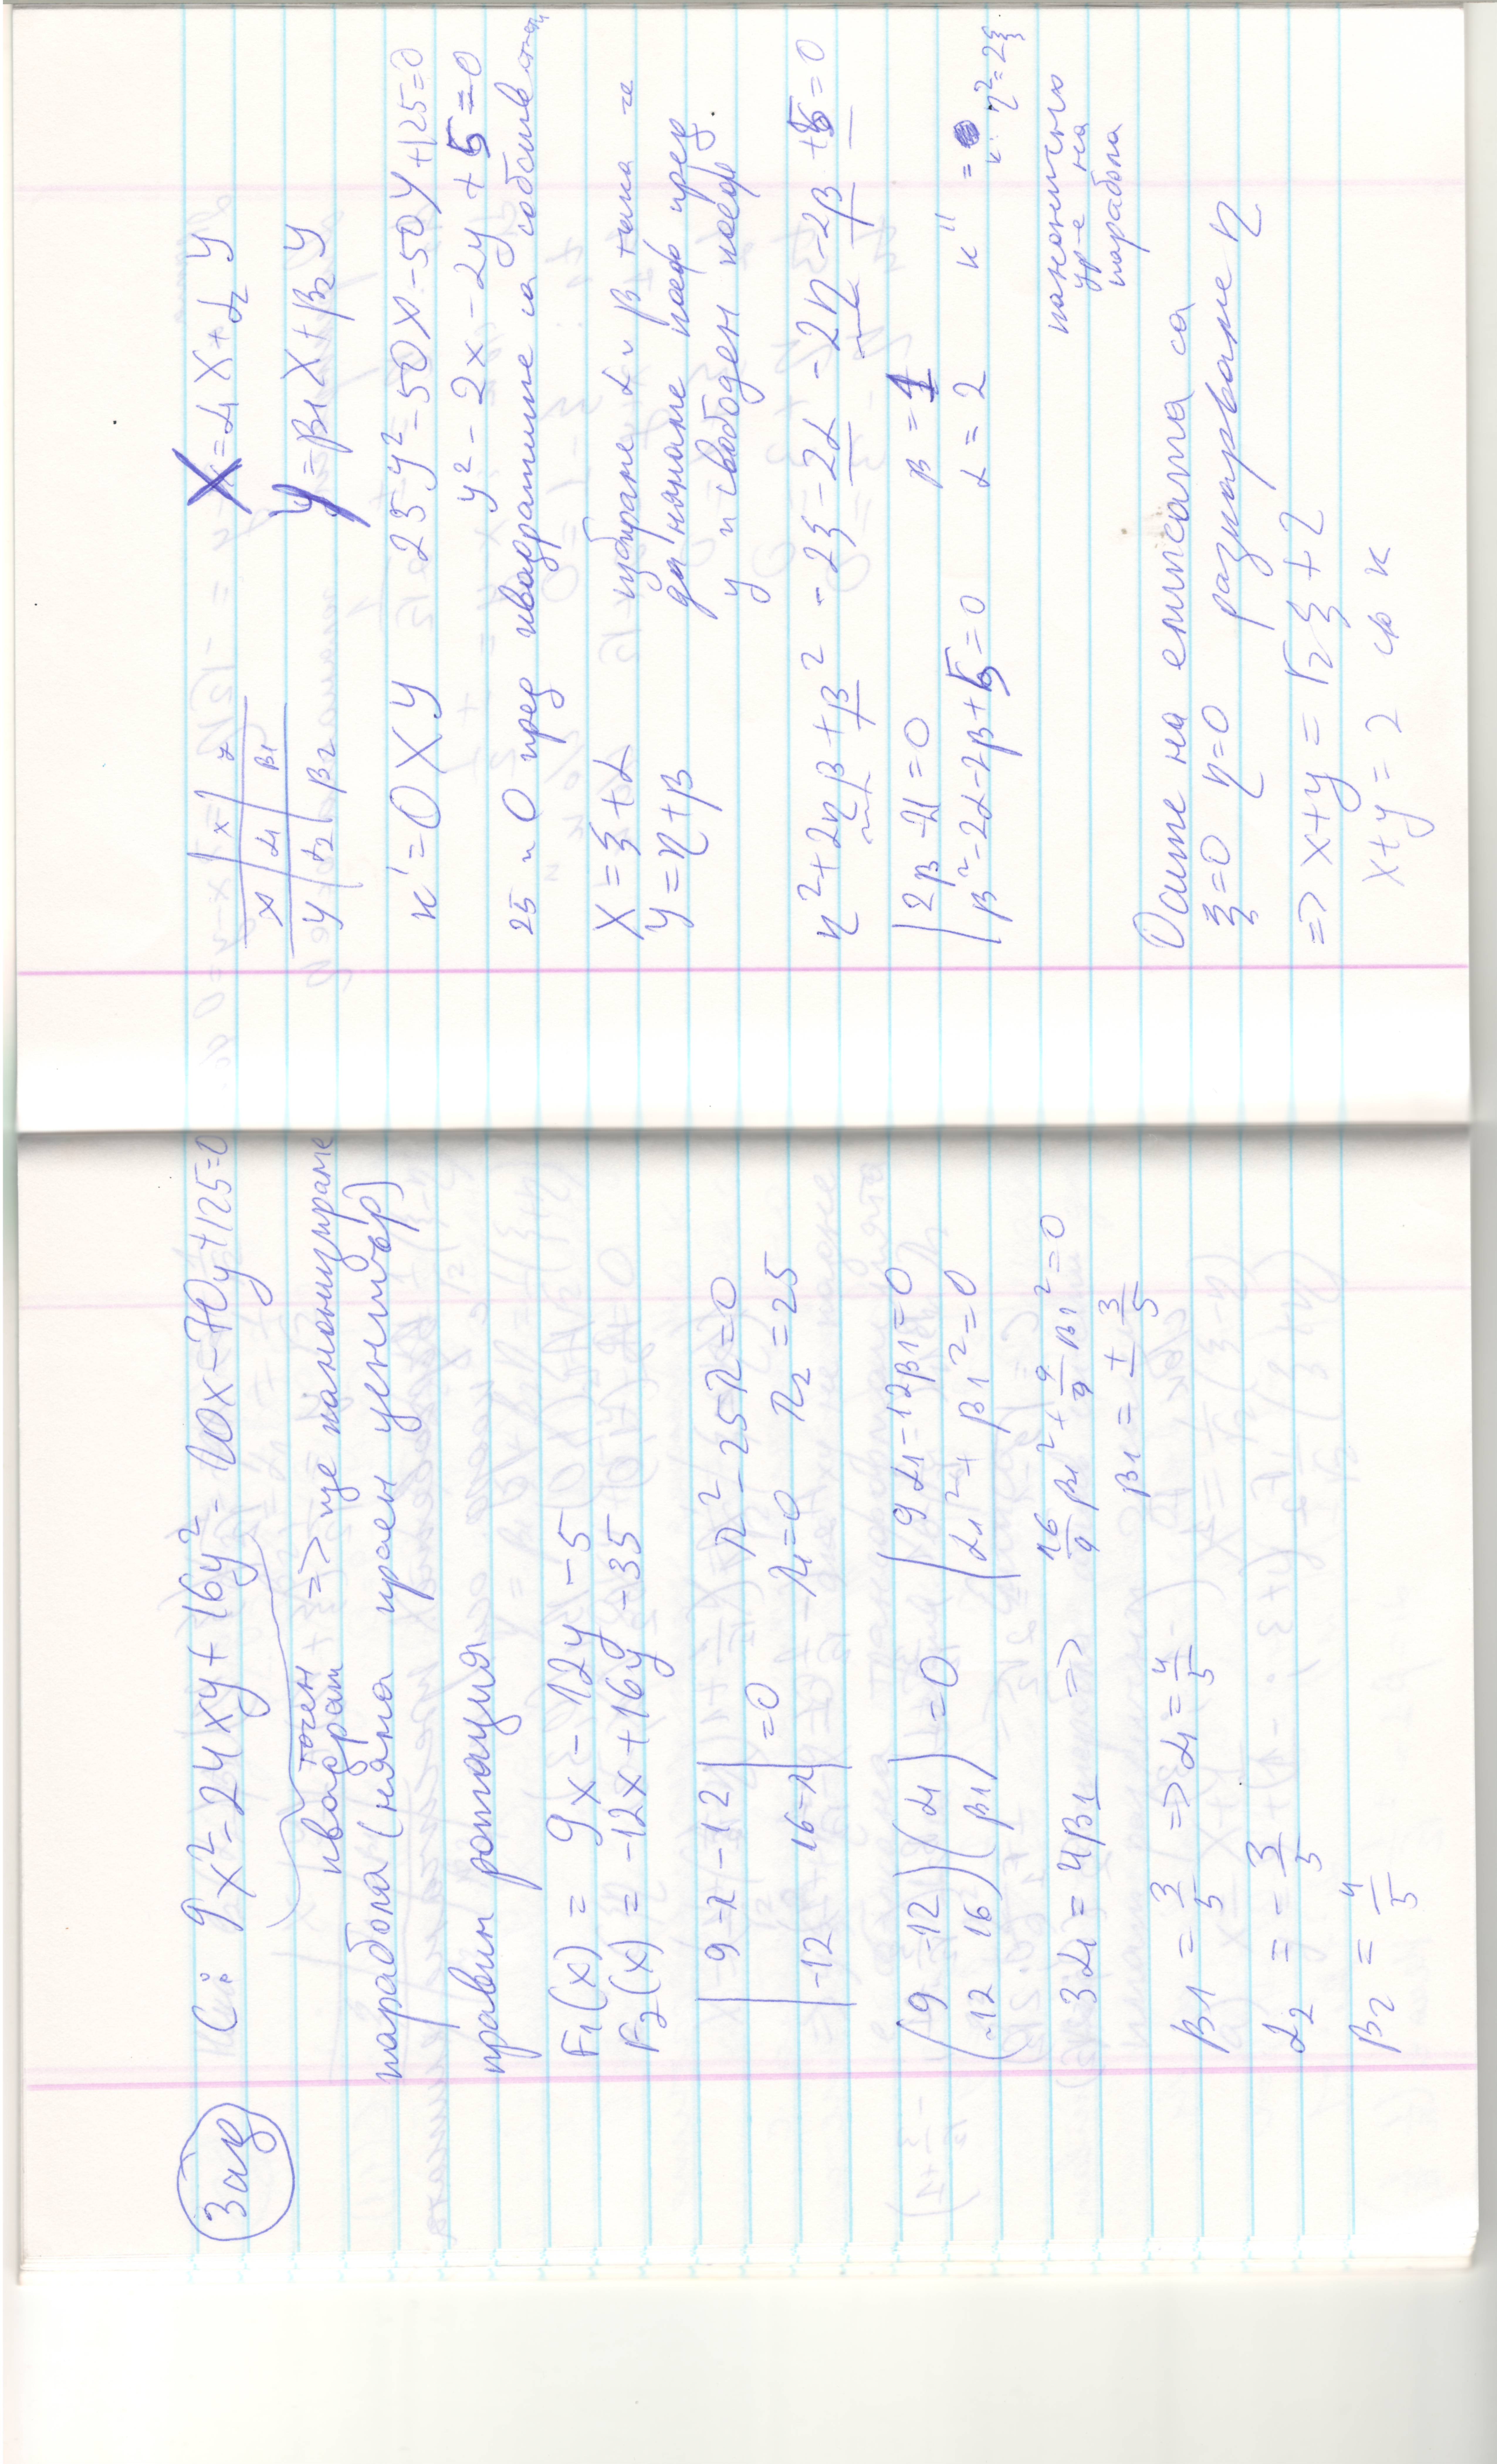 Зад
C: 9x² - 24xy + 16y² - 10x - 70y + 125 = 0
точен
квадрат => ще канонизираме
парабола (няма краен център)
правим ротация
F₁(x) = 9x - 12y - 5
F₂(x) = -12x + 16y - 35
|9-λ -12| λ² - 25λ = 0
|-12 16-λ| = 0 λ₁ = 0 λ₂ = 25
(9 -12) (α₁) = 0 | 9α₁ - 12β₁ = 0
(-12 16) (β₁) | α₁² + β₁² = 0
3α₁ = 4β₁ => 16/9 β₁² + 9/9 β₁² = 0
β₁ = ± 3/5
β₁ = 3/5 => α₁ = 4/5
α₂ = - 3/5
β₂ = 4/5
x y X = α₁X + α₂Y
X α₁ β₁
Y α₂ β₂ y = β₁X + β₂Y
к' = OXY 25y² - 50X - 50Y + 125 = 0
y² - 2x - 2y + 5 = 0
25 и 0 пред квадратите са собствени
X = ξ + α избираме α и β така че
Y = η + β да нямаме коеф пред
y и свободен коеф.
η² + 2ηβ + β² - 2ξ - 2α - 2η - 2β + 5 = 0
| 2β - 2 = 0 β = 1
| β² - 2α - 2β + 5 = 0 α = 2 к'' =
к: η² = 2ξ
канонично
ур-е на
парабола
Осите на елипсата са
ξ = 0 η = 0 разкарваме η
=> x + y = √2 ξ + 2
x + y = 2 к